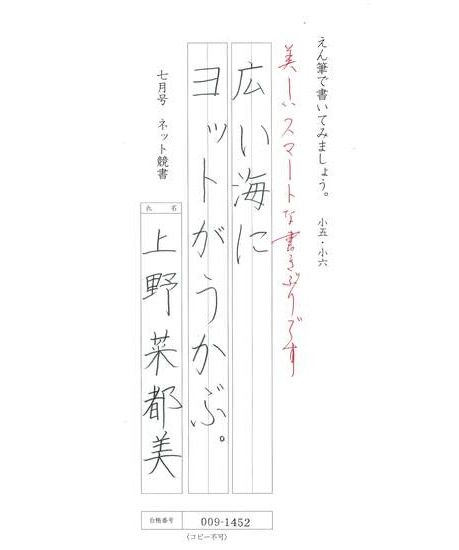 えん筆で書いてみましょう。 小五・小六
美しいスマートな書きぶりです
広い海に
ヨットがうかぶ。
七月号 ネット競書
氏名
上野菜都美
合格番号 009-1452
〈コピー不可〉